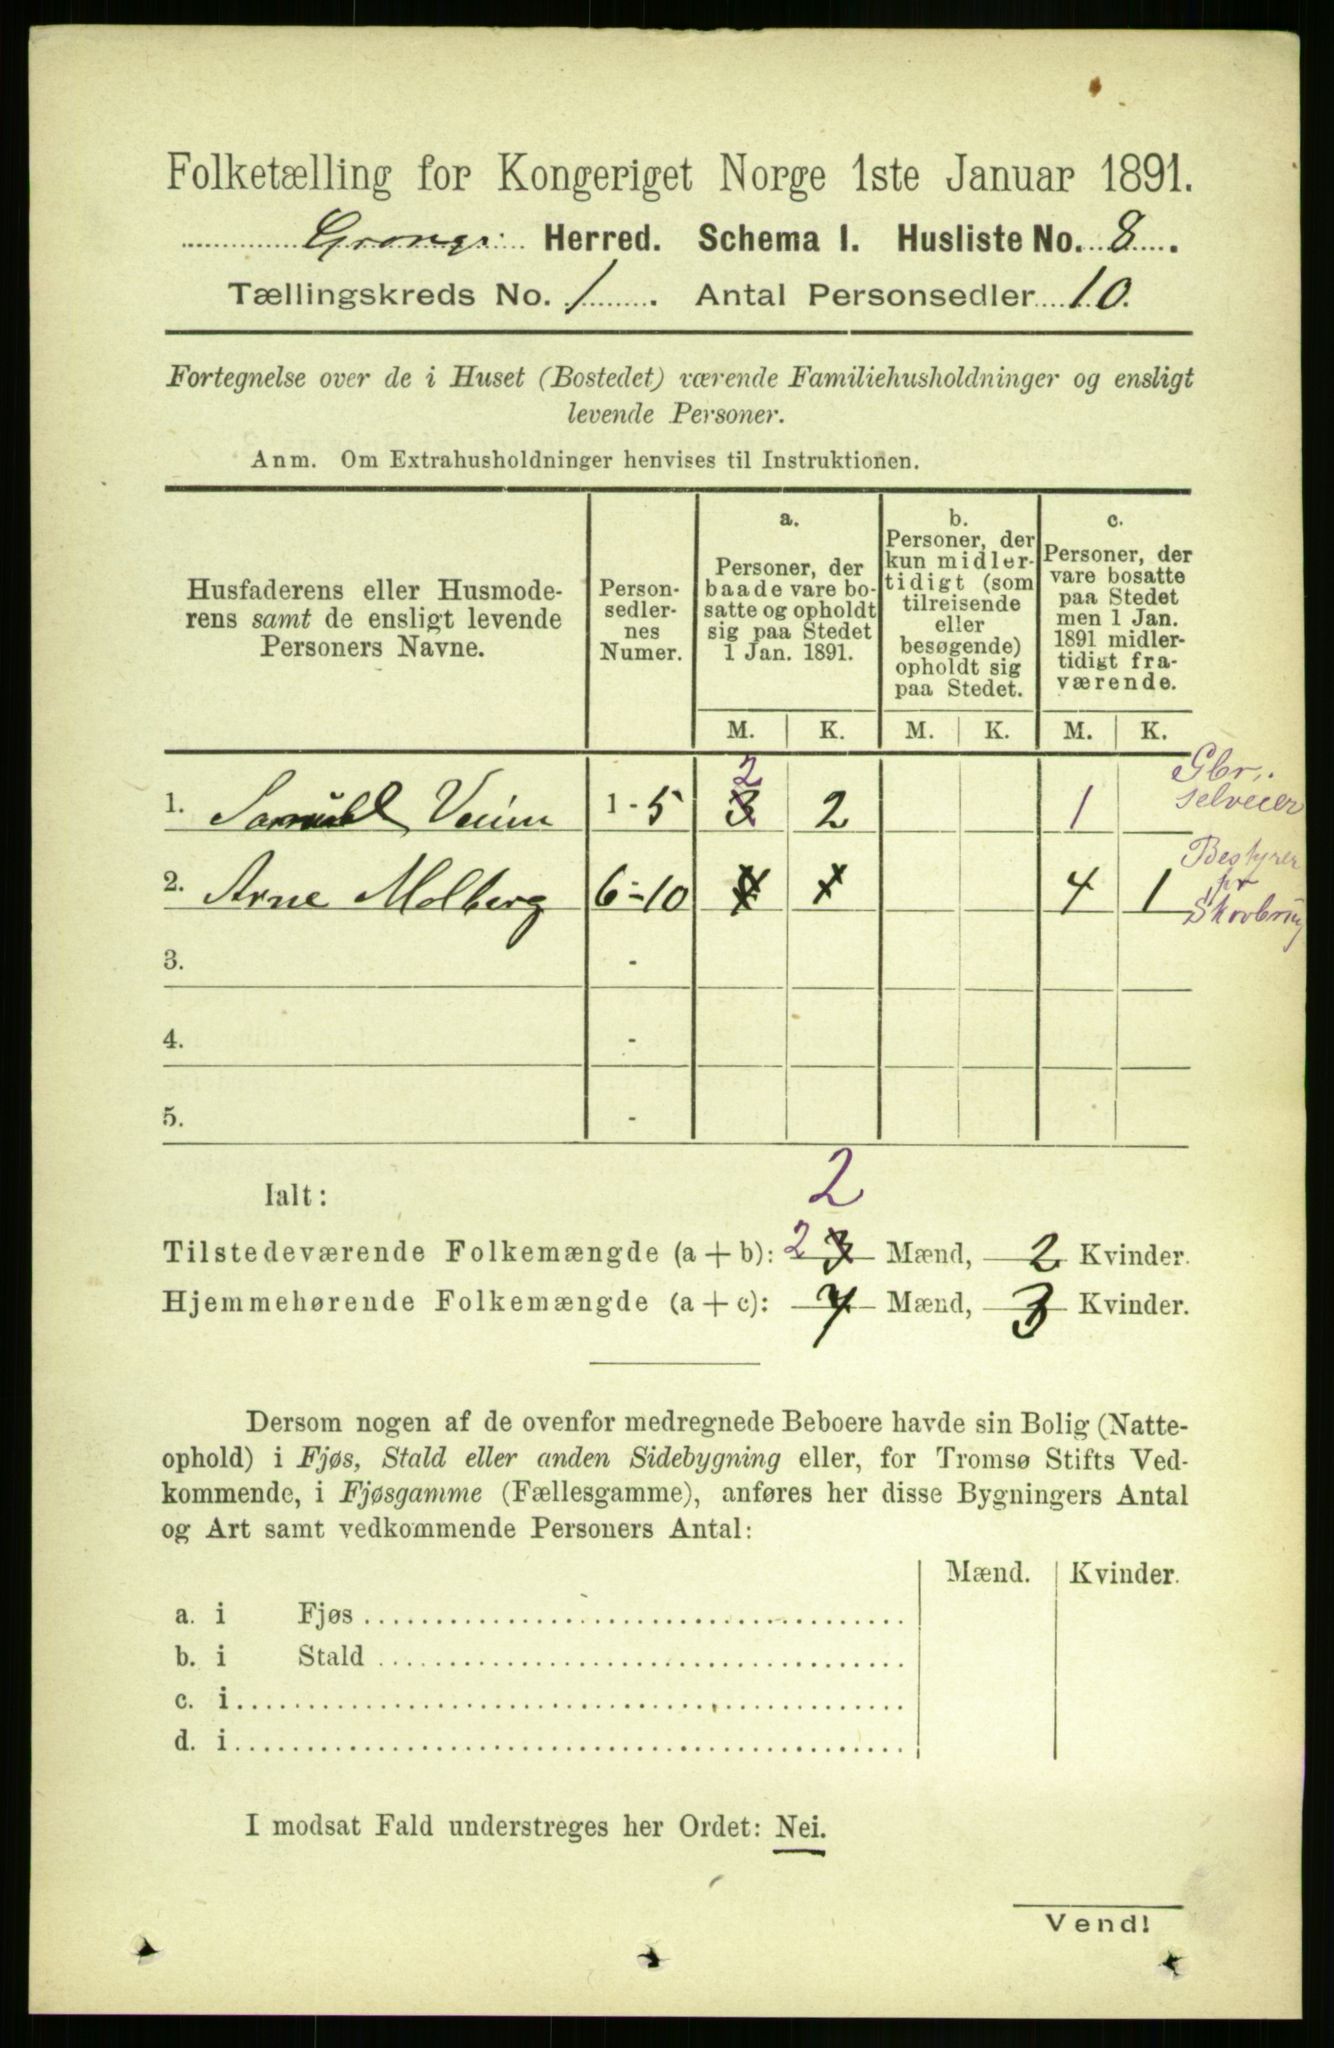 Folketælling for Kongeriget Norge 1ste Januar 1891.
Grong Herred. Schema I. Husliste No. 8.
Tællingskreds No. 1. Antal Personsedler 10.
Fortegnelse over de i Huset (Bostedet) værende Familiehusholdninger og ensligt
levende Personer.
Anm. Om Extrahusholdninger henvises til Instruktionen.
Husfaderens eller Husmode-
rens samt de ensligt levende
Personers Navne.
Person-
sedler-
nes
Numer.
a.
Personer, der
baade vare bo-
satte og opholdt
sig paa Stedet
1 Jan. 1891.
b.
Personer, der
kun midler-
tidigt (som
tilreisende
eller
besøgende)
opholdt sig
paa Stedet.
c.
Personer, der
vare bosatte
paa Stedet
men 1 Jan.
1891 midler-
tidigt fra-
værende.
M. K. M. K. M. K.
1. Samuel Veium 1-5 3 2 2 1 Gbr., selveier
2. Arne Molberg 6-10 4 1 4 1 Bestyrer pr Skovbrug
3. -
4. -
5. -
Ialt: 2
Tilstedeværende Folkemængde (a + b): 2 3 Mænd, 2 Kvinder.
Hjemmehørende Folkemængde (a + c): 7 Mænd, 3 Kvinder.
Dersom nogen af de ovenfor medregnede Beboere havde sin Bolig (Natte-
ophold) i Fjøs, Stald eller anden Sidebygning eller, for Tromsø Stifts Ved-
kommende, i Fjøsgamme (Fællesgamme), anføres her disse Bygningers Antal
og Art samt vedkommende Personers Antal:
Mænd. Kvinder.
a. i Fjøs
b. i Stald
c. i
d. i
I modsat Fald understreges her Ordet: Nei.
Vend!